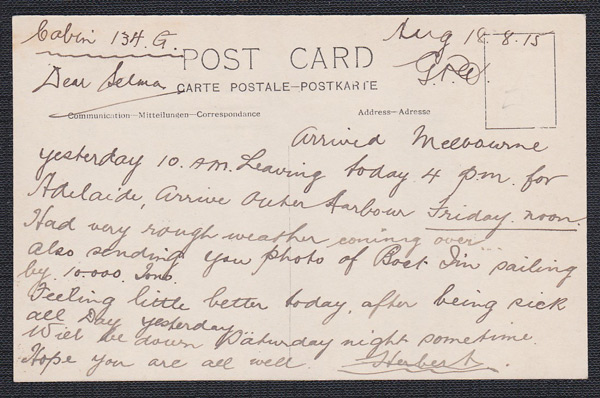 Cabin 134. G.
Aug 18.8.15
POST CARD
CARTE POSTALE—POSTKARTE
Dear Selma
Communication—Mitteilungen—Correspondance
Address—Adresse
Arrived Melbourne
yesterday 10. A.M. Leaving today 4 p.m. for
Adelaide, Arrive Outer Harbour Friday noon.
Had very rough weather coming over
also sending you photo of Boat I'm sailing
by 10.000 Tons.
Feeling little better today, after being sick
all Day yesterday
Will be down Saturday night sometime.
Hope you are all well. Herbert.